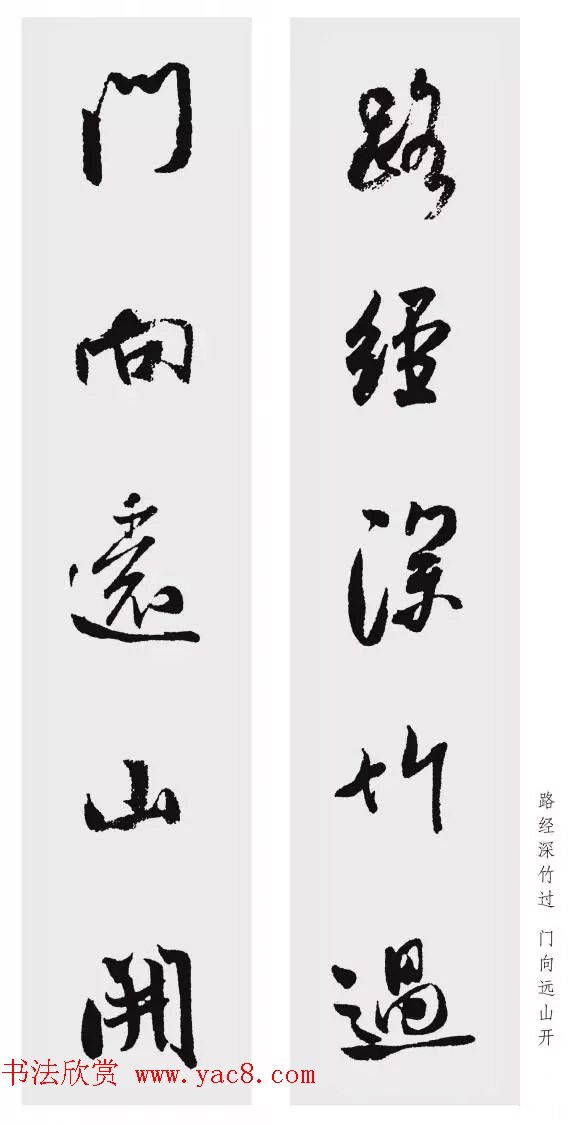 路經深竹過
門向遠山開
路经深竹过 门向远山开
书法欣赏 www.yac8.com